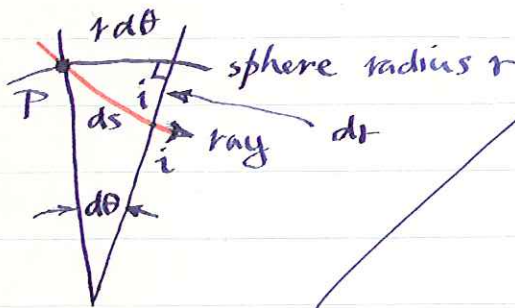 r dθ
sphere radius r
P
i
ds
dr
ray
i
dθ